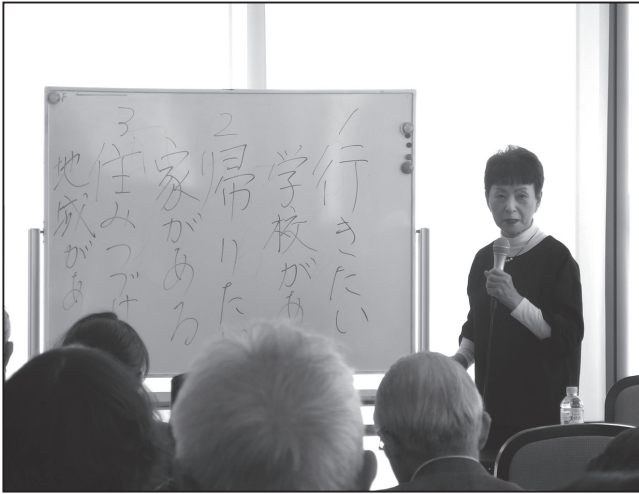 1行きたい
学校があ
2帰りた
家がある
3住みつづけ
地域があ